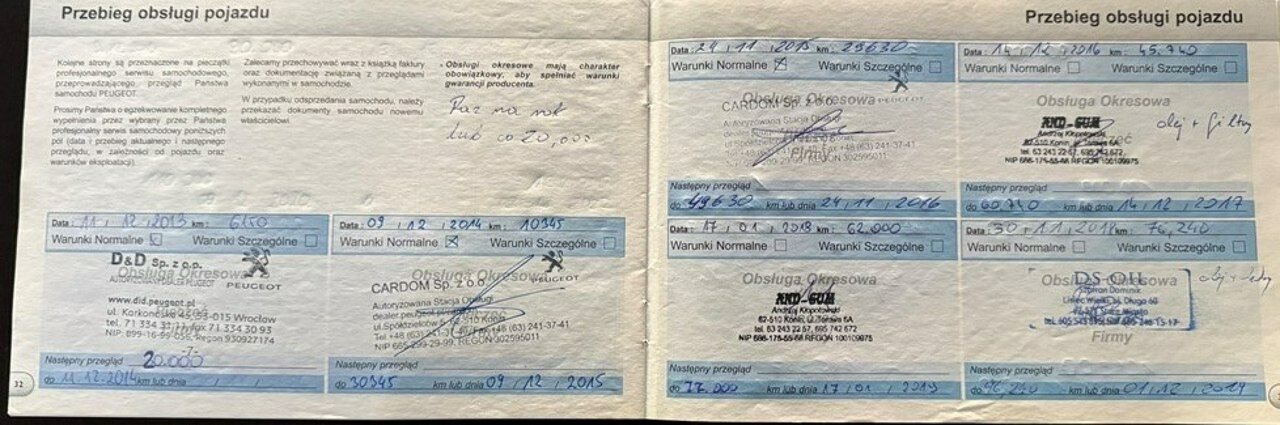 Przebieg obsługi pojazdu
Kolejne strony są przeznaczone na pieczątki
profesjonalnego serwisu samochodowego,
przeprowadzającego, przegląd Państwa
samochodu PEUGEOT.
Prosimy Państwa o egzekwowanie kompletnego
wypełnienia przez wybrany przez Państwa
profesjonalny serwis samochodowy poniższych
pól (data i przebieg aktualnego i następnego
przeglądu, w zależności od pojazdu oraz
warunków eksploatacji).
Zalecamy przechowywać wraz z książką faktury
oraz dokumentację związaną z przeglądami
wykonanymi w samochodzie.
W przypadku odsprzedania samochodu, należy
przekazać dokumenty samochodu nowemu
właścicielowi.
• Obsługi okresowe mają charakter
obowiązkowy, aby spełniać warunki
gwarancji producenta.
Raz na rok
lub co 20,000
Data : 11 , 12 , 2013 km : 6150
Warunki Normalne Warunki Szczególne
D&D Sp. z o.o.
AUTORYZOWANY DEALER PEUGEOT
PEUGEOT
Obsługa Okresowa
www.did.peugeot.pl
ul. Karkonoska 45, 53-015 Wrocław
tel. 71 334 31 11, fax 71 334 30 93
NIP: 899-16-99-056, Regon 930927174
Następny przegląd 20.000
do 11.12.2014 km lub dnia
32
Data : 09 , 12 , 2014 km : 10345
Warunki Normalne Warunki Szczególne
Obsługa Okresowa
PEUGEOT
CARDOM Sp. z o.o.
Autoryzowana Stacja Obsługi
dealer Peugeot
ul. Spółdzielców 62-510 Konin
Fax +48 (63) 241-37-41
NIP 665-299-29-99, REGON 302595011
Następny przegląd
do 30345 km lub dnia 09 , 12 , 2015
Przebieg obsługi pojazdu
Data : 24 , 11 , 2015 km : 29630
Warunki Normalne Warunki Szczególne
Obsługa Okresowa
PEUGEOT
CARDOM Sp. z o.o.
Autoryzowana Stacja Obsługi
dealer
Fax +48 (63) 241-37-41
REGON 302595011
Następny przegląd
do 49630 km lub dnia 24 , 11 , 2016
Data : 14 , 12 , 2016 km : 45.740
Warunki Normalne Warunki Szczególne
Obsługa Okresowa
AND-GUM
Andrzej Kłopotowski
62-510 Konin, ul. Torowa 6A
tel. 63 243 22 57, 695 742 672
NIP 666-175-55-88 REGON 100109975
olej + filtry
Następny przegląd
do 60.740 km lub dnia 14 , 12 , 2017
Data : 17 , 01 , 2018 km : 62.000
Warunki Normalne Warunki Szczególne
Obsługa Okresowa
AND-GUM
Andrzej Kłopotowski
62-510 Konin, ul. Torowa 6A
tel. 63 243 22 57, 695 742 672
NIP 666-175-55-88 REGON 100109975
Następny przegląd
do 77.000 km lub dnia 17 , 01 , 2019
Data : 30 , 11 , 2018 km : 76,240
Warunki Normalne Warunki Szczególne
Obsługa Okresowa
DS-OIL
Dominik
Firmy
Następny przegląd
do 96,240 km lub dnia 01 , 12 , 2019